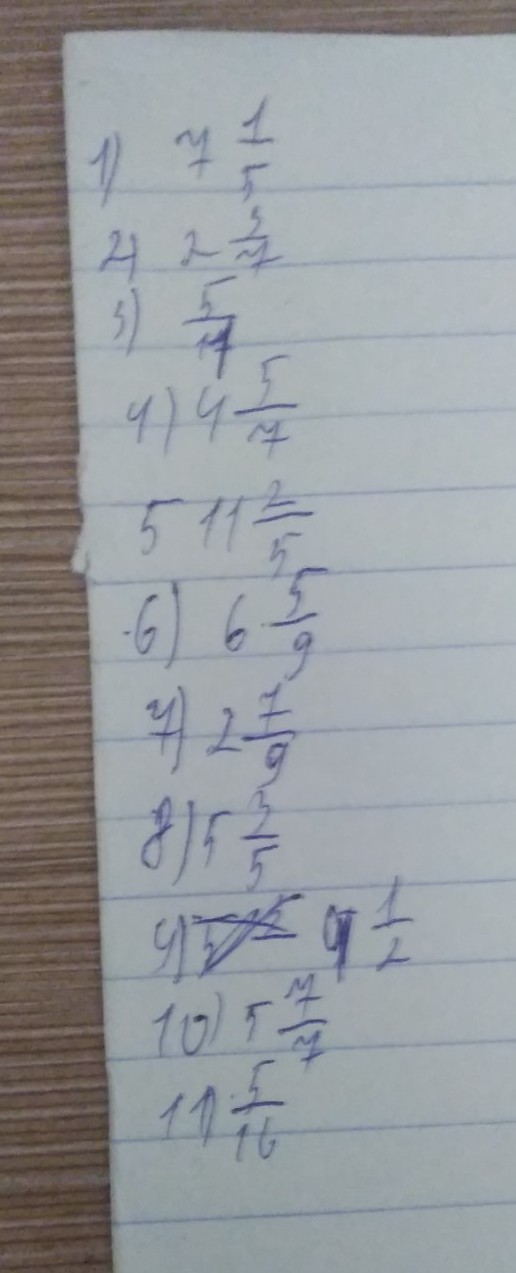 1) 7 1/5
2) 2 3/7
3) 5/11
4) 4 5/7
5 11 2/5
6) 6 5/9
7) 2 7/9
8) 5 3/5
9) 9 1/2
10) 5 7/7
11) 5/16